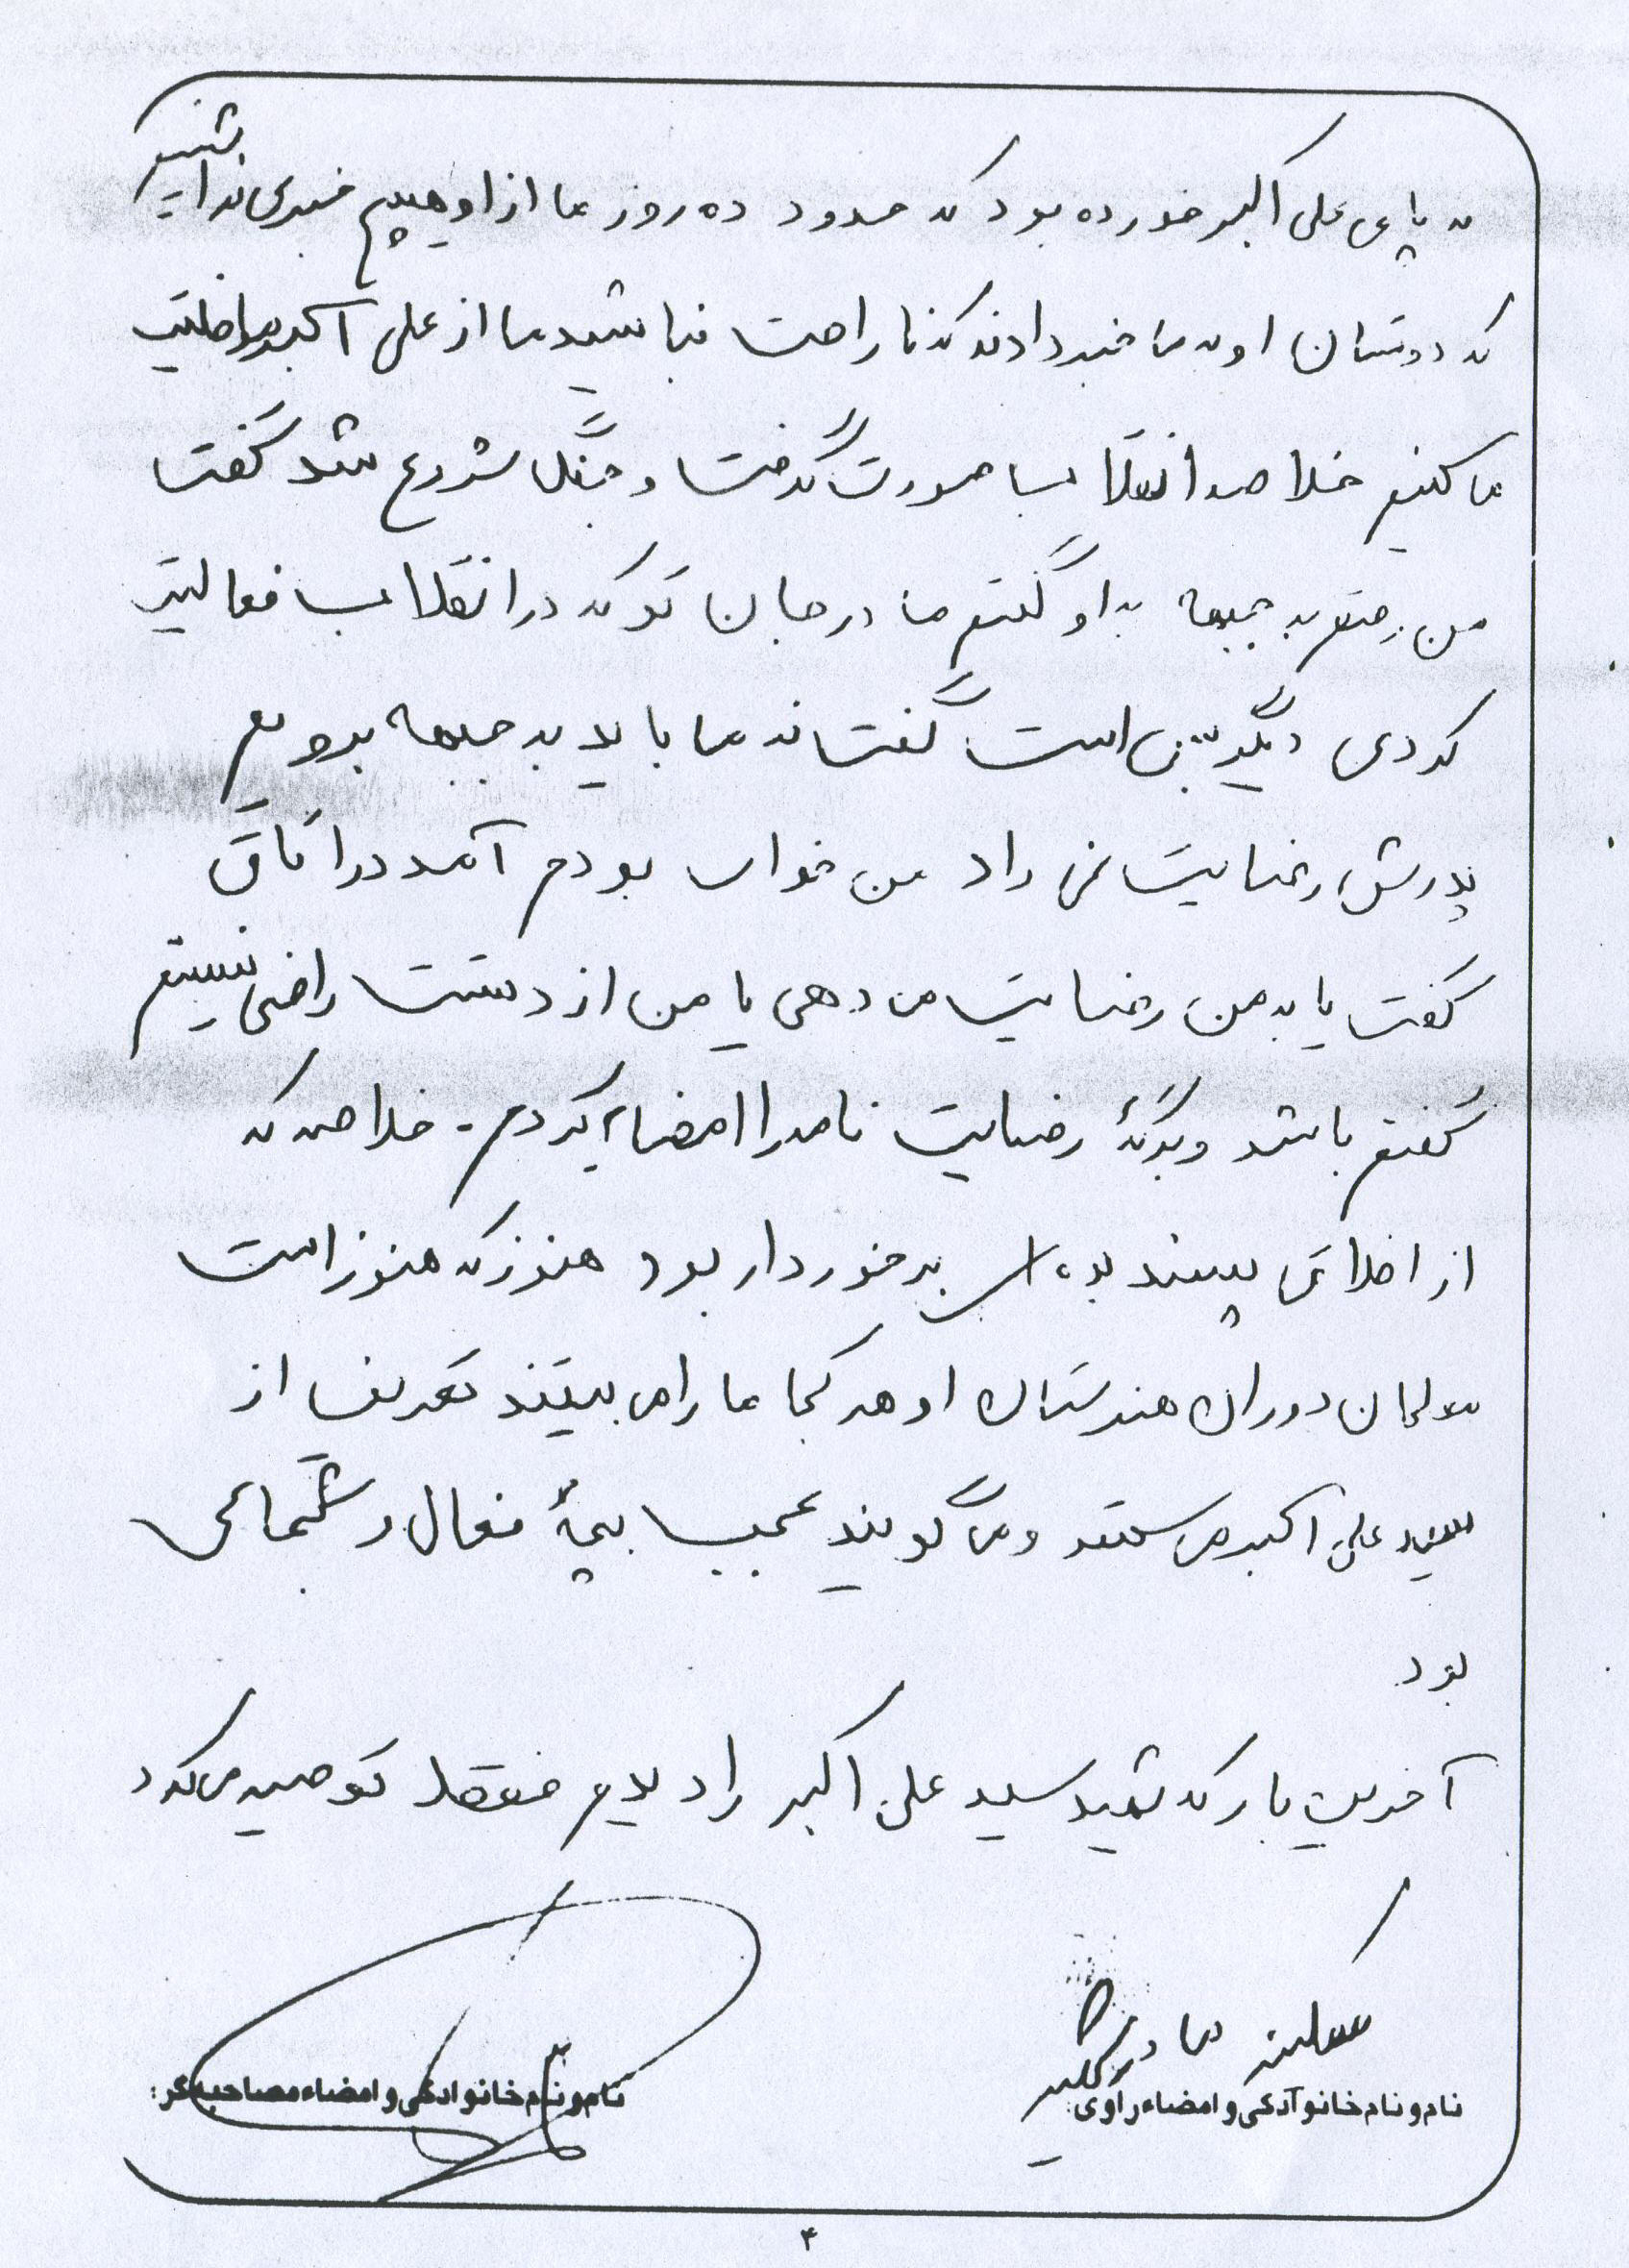 به پای علی اکبر خورده بود که حدود ده روز ما از او هیچ خبری نداشتیم
که دوستان او به ما خبر دادند که ناراحت نباشید ما از علی اکبر مواظبت
ما کنیم خلاصه انقلاب صورت گرفت و جنگ شروع شد گفت
من رفتم به جبهه به او گفتم مادر جان تو که در انقلاب فعالیت
کردی دیگر بس است گفت نه ما باید به جبهه برویم
پدرش رضایت نمی داد من خواب بودم آمد در اتاق
گفت یا به من رضایت می دهی یا من از دستت راضی نیستم
گفتم باشد و برگهٔ رضایت نامه را امضاء کردم - خلاصه که
از اخلاق پسندیده ای برخوردار بود هنوز که هنوز است
معلمان دوران هنرستان او هر کجا ما را می بینند تعریف از
سید علی اکبر می کنند و می گویند عجب بچهٔ فعال و شجاعی
بود
آخرین بار که شهید سید علی اکبر را دیدم فقط توصیه می کرد
سکینه
نام و نام خانوادگی و امضاء راوی:
نام و نام خانوادگی و امضاء مصاحبه گر:
۴